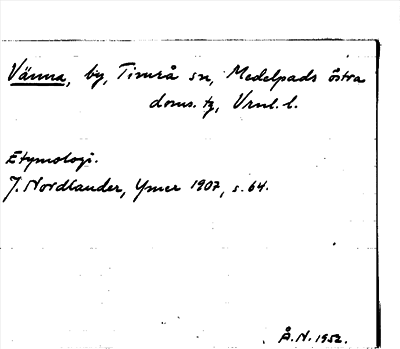 Vänna, by, Timrå sn, Medelpads östra
doms. tg, Vrnl. l.
Etymologi.
J. Nordlander, Ymer 1907, s. 64.
Å. N. 1952.